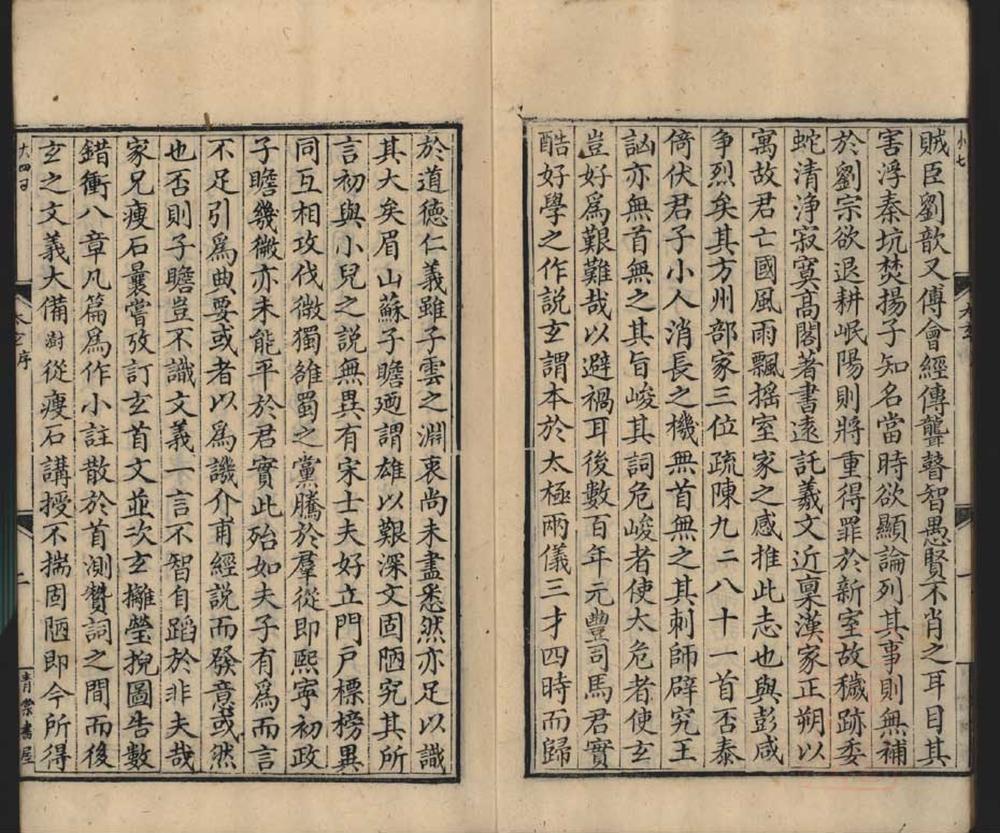 小七
賊臣劉歆又傅會經傳聾瞽智愚賢不肖之耳目其
害浮秦坑焚揚子知名當時欲顯論列其事則無補
於劉宗欲退耕岷陽則將重得罪於新室故穢跡委
蛇清浄寂寞髙閣著書遠託羲文近稟漢家正朔以
寓故君亡國風雨飄揺室家之感推此志也與彭咸
争烈矣其方州部家三位疏陳九二八十一首否泰
倚伏君子小人消長之機無首無之其刺師辟究王
訩亦無首無之其旨峻其詞危峻者使太危者使玄
豈好爲艱難哉以避禍耳後數百年元豐司馬君實
酷好學之作説玄謂本於太極兩儀三才四時而歸
於道德仁義雖子雲之淵衷尚未盡悉然亦足以識
其大矣眉山蘇子瞻廼謂雄以艱深文固陋究其所
言初與小兒之説無異有宋士夫好立門戶標榜異
同互相攻伐微獨雒蜀之黨騰於羣從即熙寧初政
子瞻幾微亦未能平於君實此殆如夫子有爲而言
不足引爲典要或者以爲譏介甫經説而發意或然
也否則子瞻豈不識文義一言不智自蹈於非夫哉
家兄瘦石曩嘗攷訂玄首文並次玄攡瑩掜圖告數
錯衝八章凡篇爲作小註散於首測贊詞之間而後
玄之文義大備澍從瘦石講授不揣固陋即今所得
太玄序
二
青棠書屋